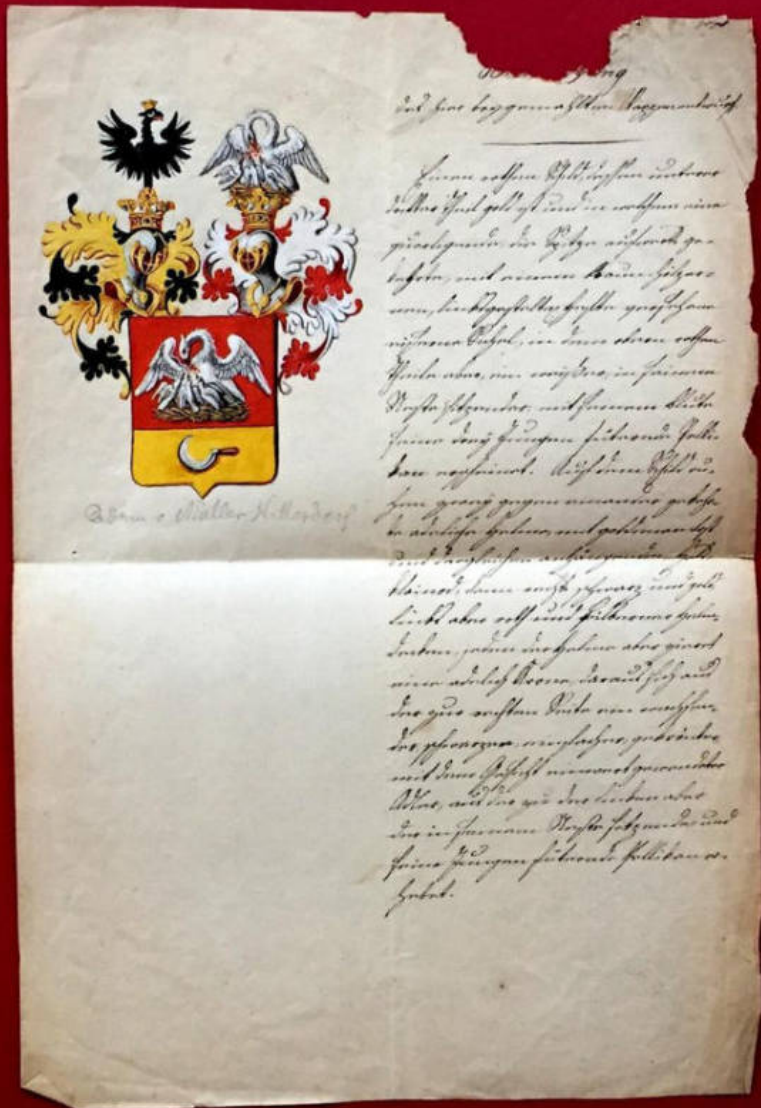 des hier beygemahlten Wappenentwurfs
Einen rothen Schild, dessen unterer
dritter Theil gold ist und in welchem eine
querliegende, die Spitze aufwärts ge-
kehrte, mit einem braun hölzer-
nen, links Hefte versehene
eiserne Sichel, in dem obern rothen
Theile aber, ein weißer, in seinem
Neste sitzender, mit seinem Blute
seine drey Jungen fütternde Pelli-
kan erscheinet. Auf dem Schild ru-
hen zwey gegen einander gekehr-
te adeliche Helme, mit goldenen
und dergleichen anhängenden
kleinod, dann rechts schwarz und gold
links aber roth und silbernen Helm-
decken, jeden der Helme aber zieret
eine adelich Krone, daraus sich aus
der zur rechten Seite ein wachsen-
der schwarzer, einfacher, gekrönter
mit dem Gesicht einwärts gewandter
Adler, aus der zu der linken aber
der in seinem Neste sitzende und
seine Jungen fütternde Pellikan er-
hebet.